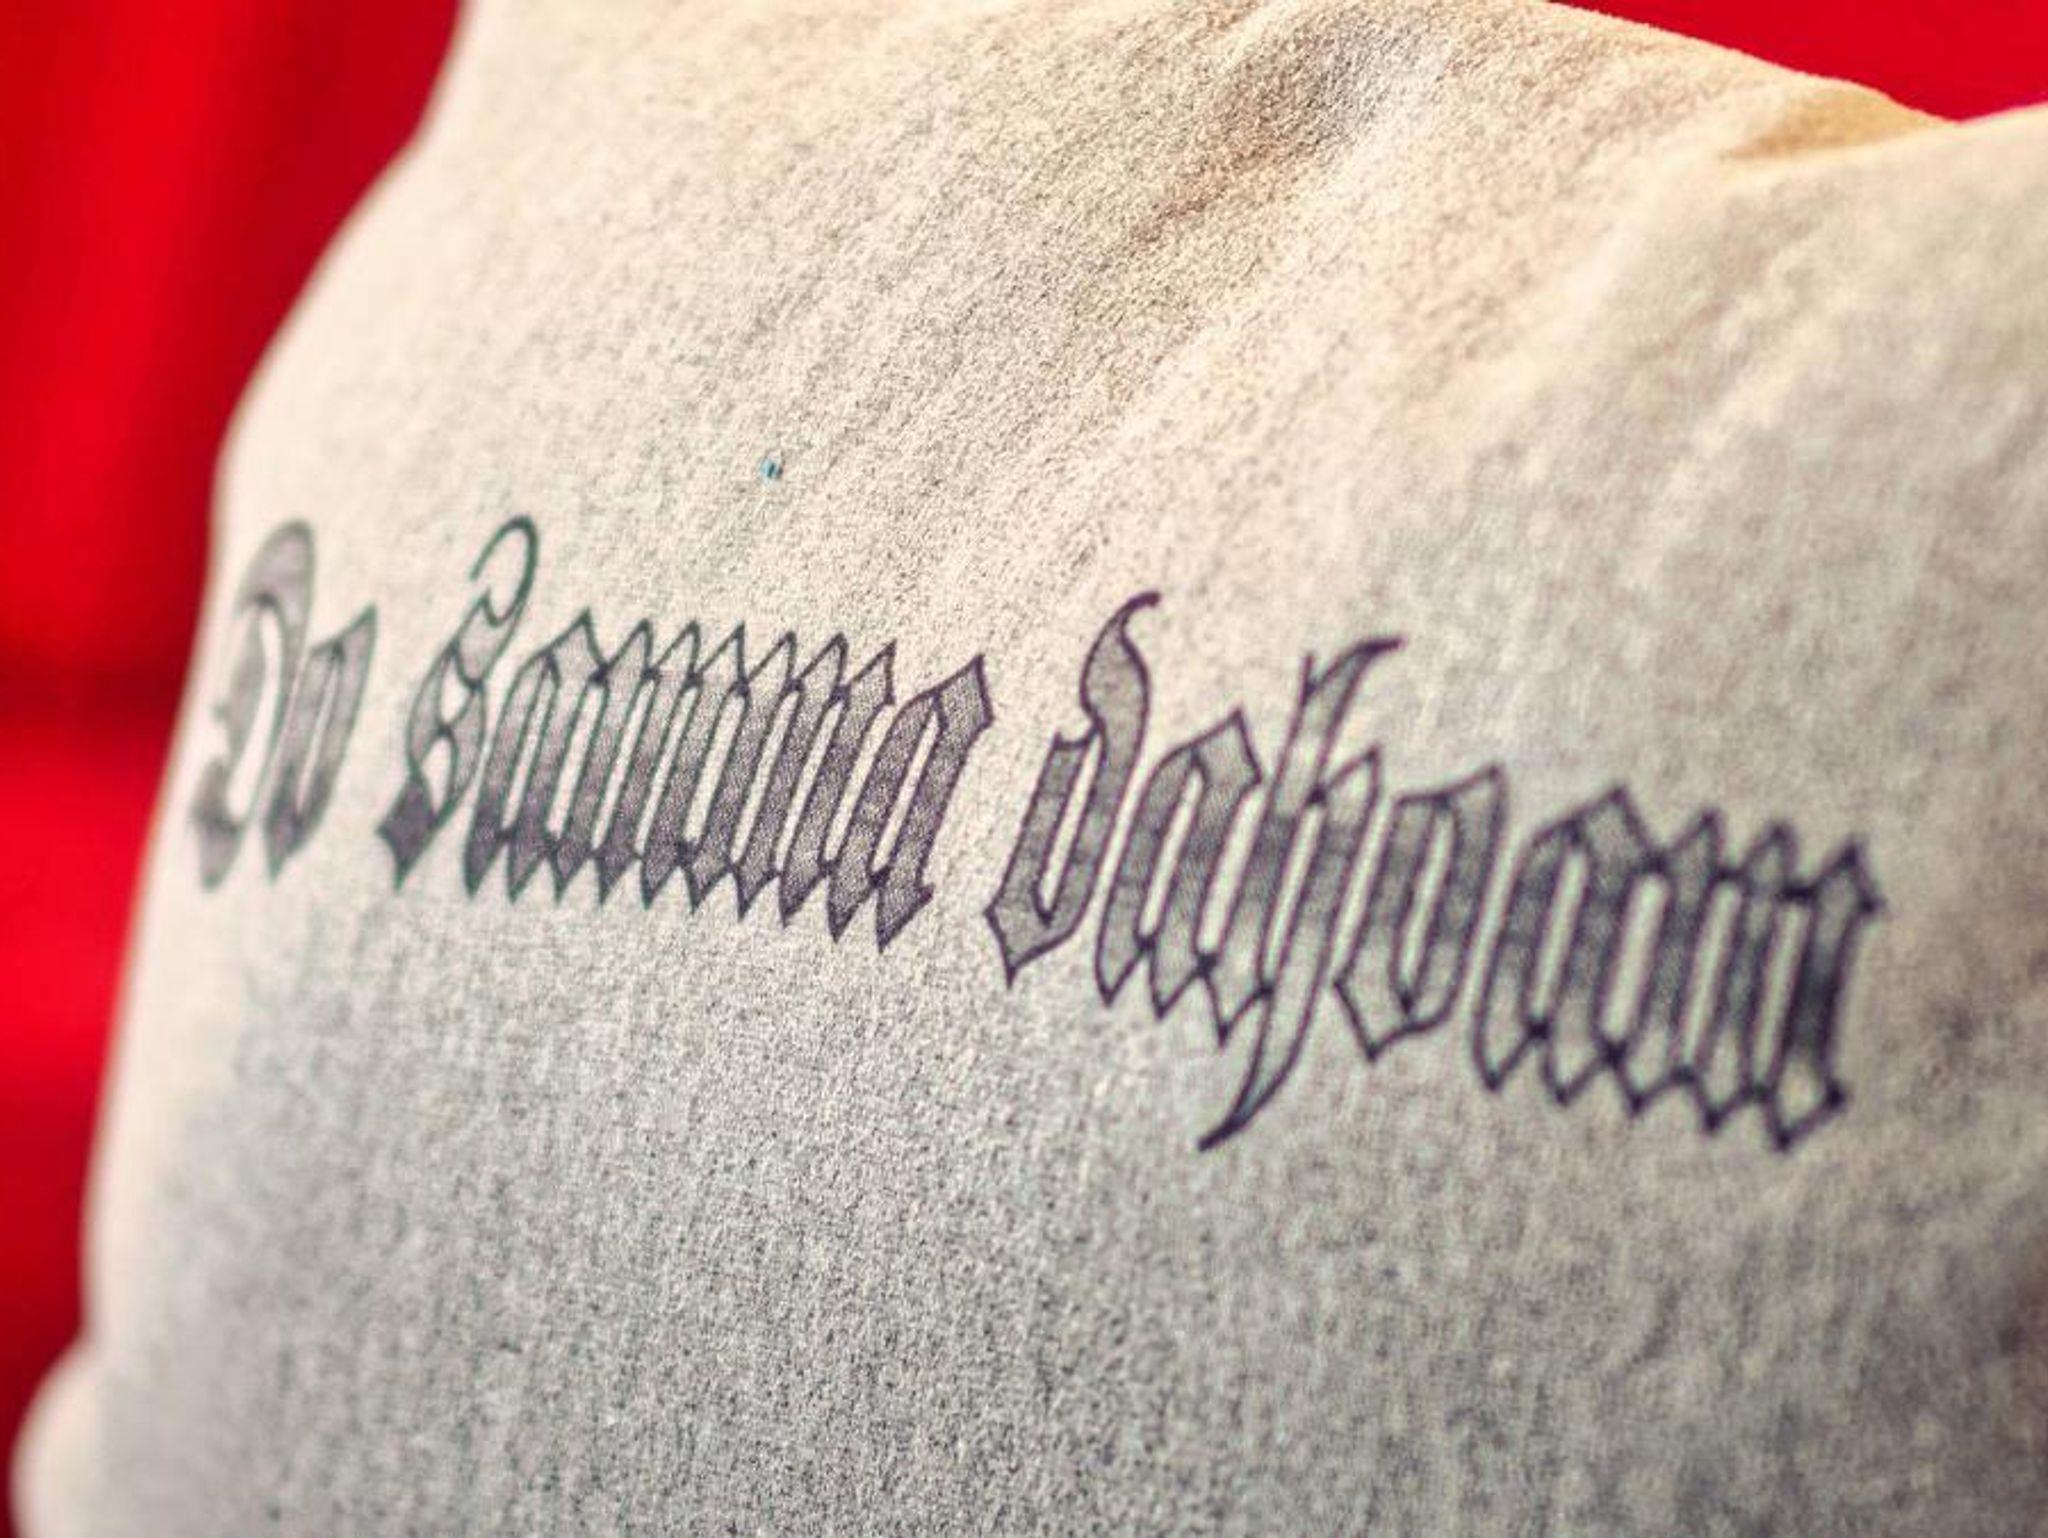 Do Samma dahoam